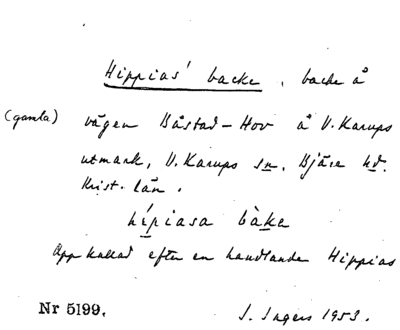 Hippias' backe, backe å
(gamla) vägen Båstad-Hov å V. Karups
utmark, V. Karups sn, Bjäre hd.
Krist. län.
hípiasa bàka
Uppkallad efter en handlande Hippias
Nr 5199. I. Ingers 1953.